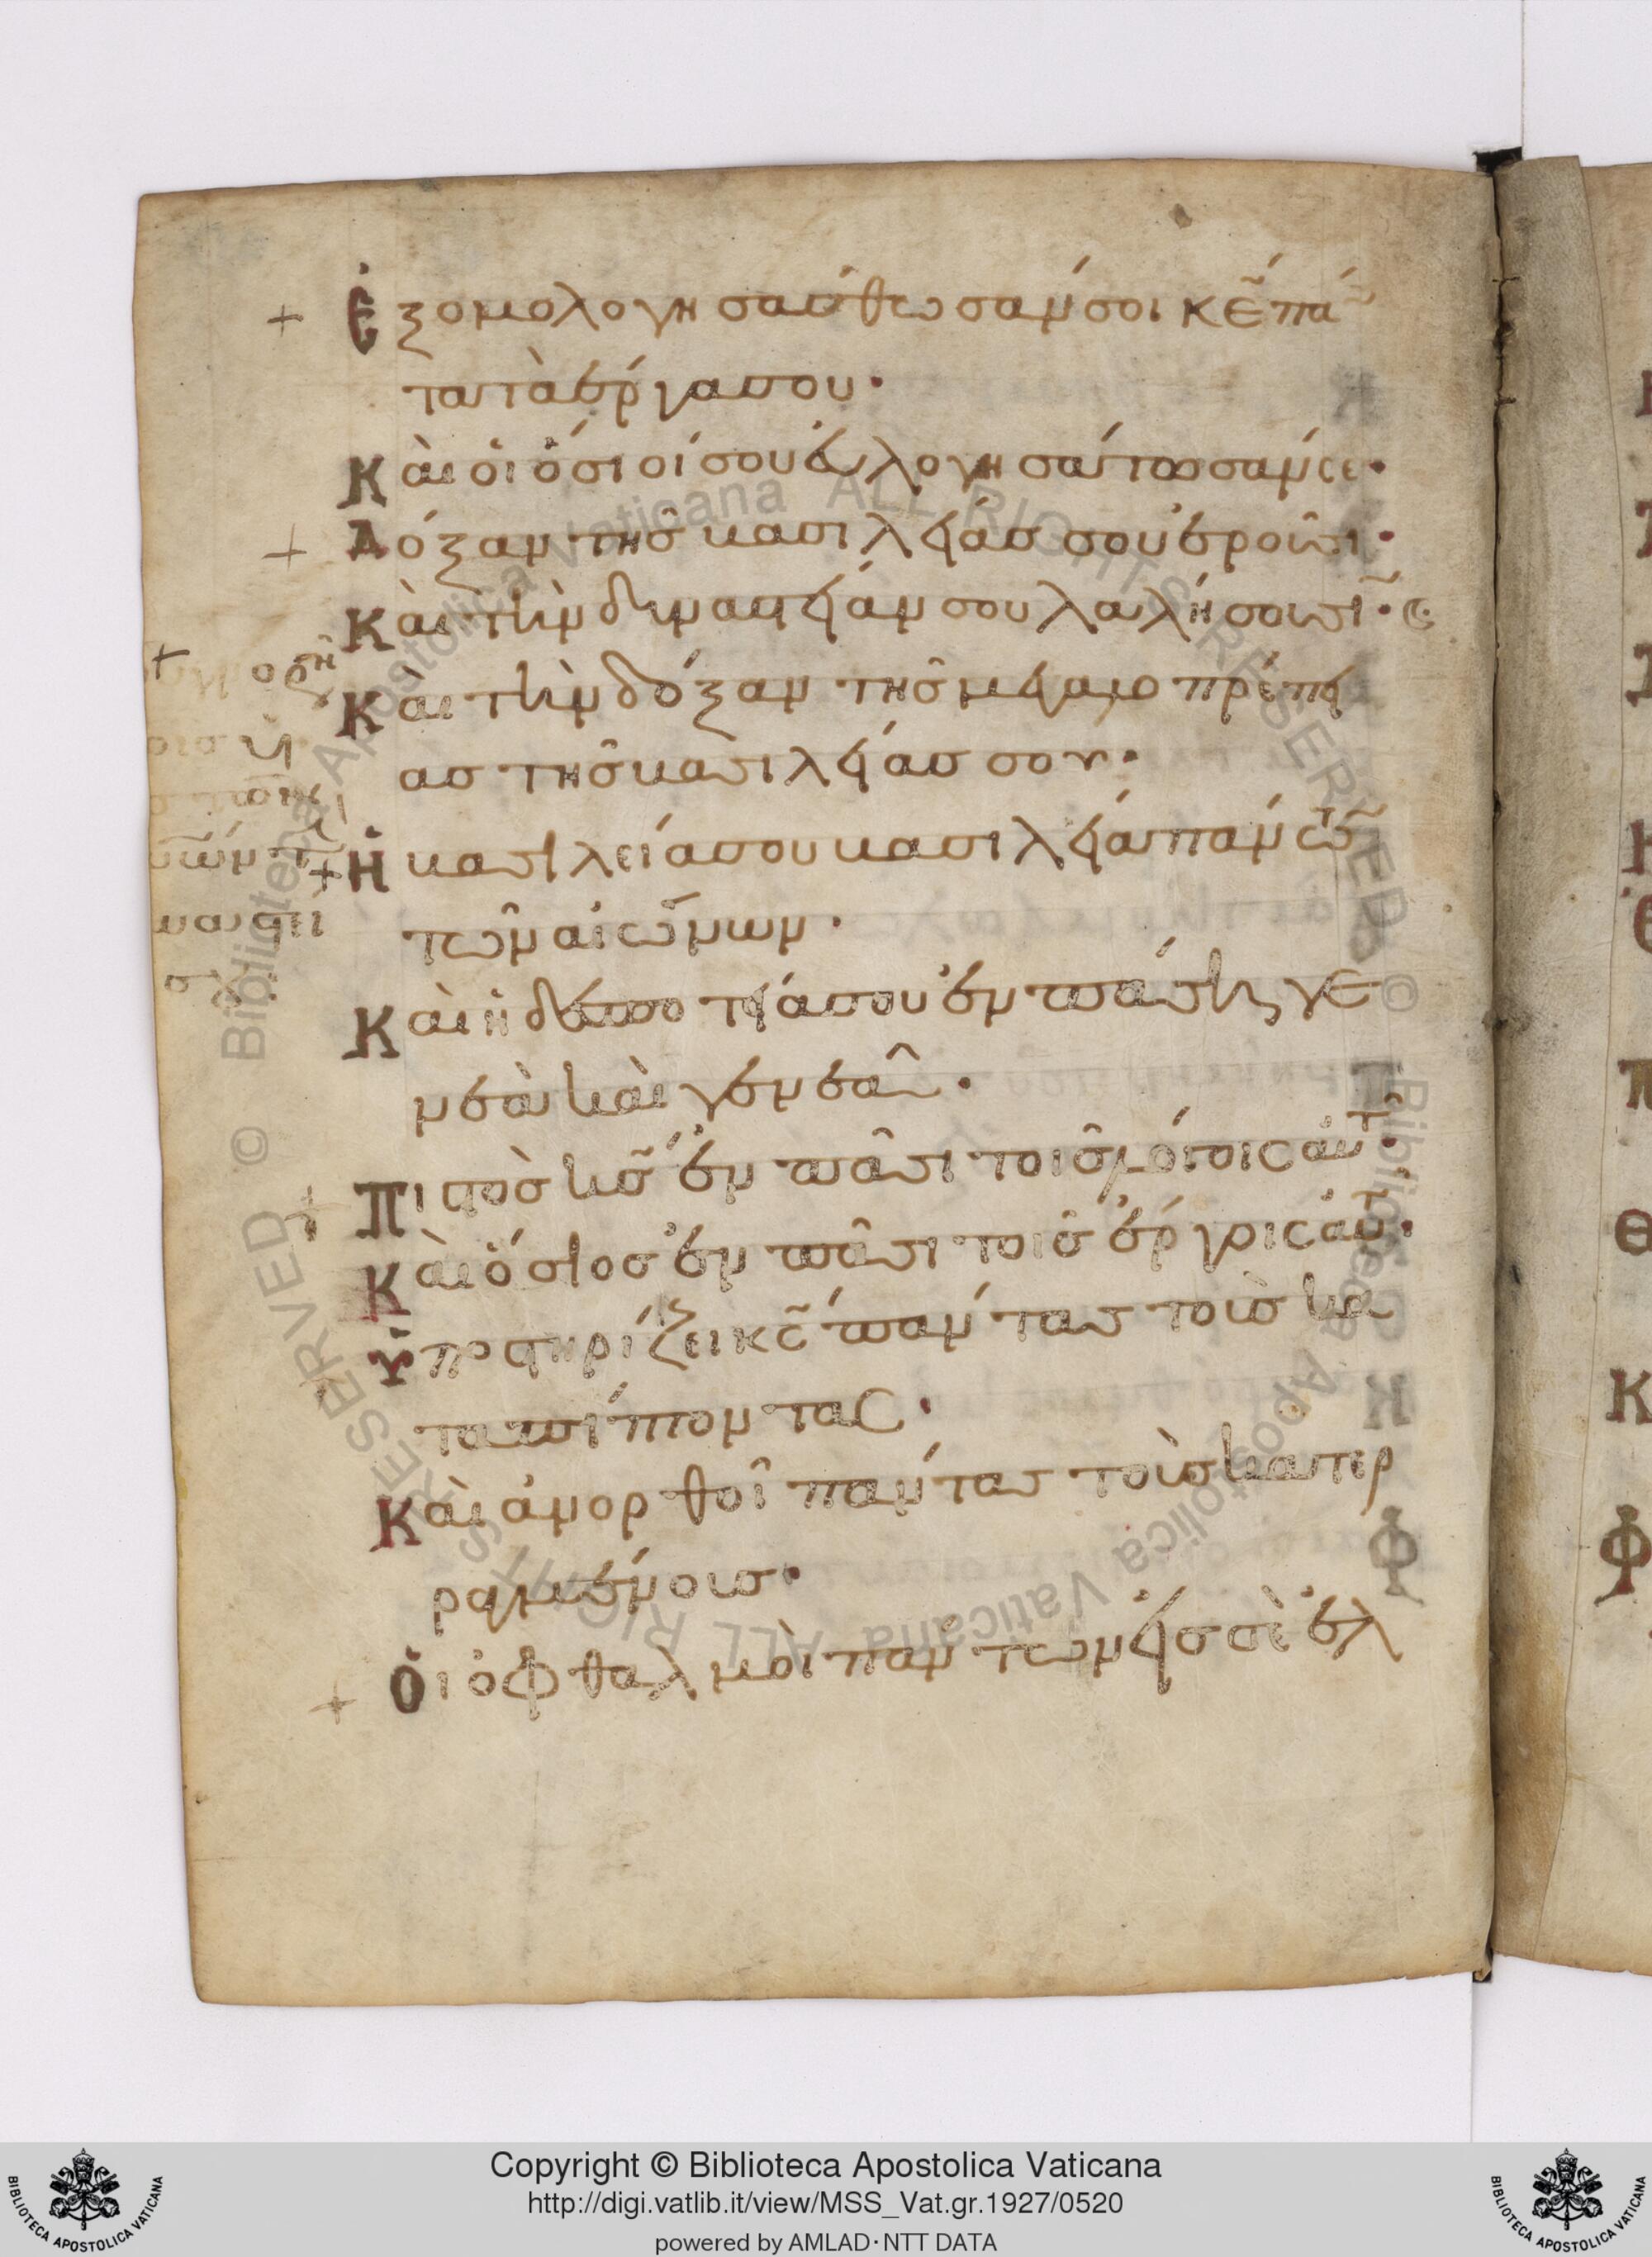 Ἐξομολογησάσθωσάν σοι κε̄ πά
τα τὰ ἔργα σου·
Καὶ οἱ ὅσιοί σου εὐλογησάτωσάν σε·
Δόξαν τῆς βασιλείας σου ἐροῦσι·
Καὶ τὴν δυναστείαν σου λαλήσουσι·
Καὶ τὴν δόξαν τῆς μεγαλοπρεπεί
ας τῆς βασιλείας σου·
Ἡ βασιλεία σου βασιλεία πάντων
τῶν αἰώνων·
Καὶ ἡ δεσποτεία σου ἐν πάσῃ γε
νεᾷ καὶ γενεᾷ·
Πιστὸς κς̄ ἐν πᾶσι τοῖς λόγοις αὐτ
Καὶ ὅσιος ἐν πᾶσι τοῖς ἔργοις αὐτ·
Ὑποστηρίζει κς̄ πάντας τοὺς κα
ταπίπτοντας·
Καὶ ἀνορθοῖ πάντας τοὺς κατερ
ραγμένους·
Οἱ ὀφθαλμοὶ πάντων εἰς σὲ ἐλ
Copyright © Biblioteca Apostolica Vaticana
http://digi.vatlib.it/view/MSS_Vat.gr.1927/0520
powered by AMLAD·NTT DATA